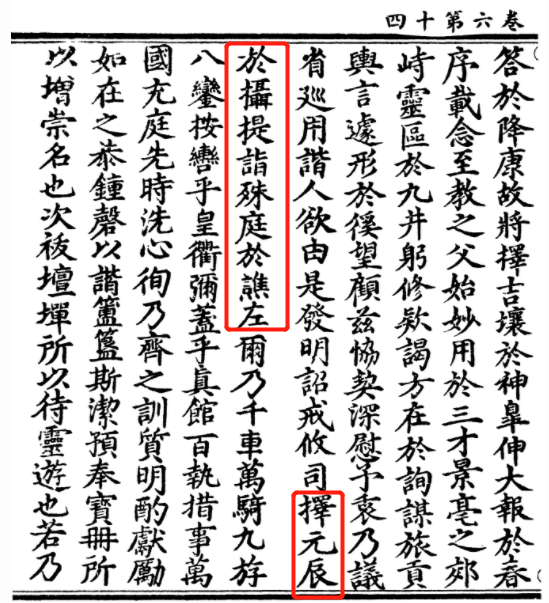 卷六第十四
答於降康故將擇吉壤於神臯伸大報於春
序載念至教之父始妙用於三才景亳之郊
峙靈區於九井躬修欵謁方在於詢謀旅貢
輿言遽形於徯望顧兹協契深慰予衷乃議
省廵用諧人欲由是發明詔戒攸司擇元辰
於攝提詣殊庭於譙左爾乃千車萬騎九斿
八鑾按轡乎皇衢彌蓋乎真館百執措事萬
國充庭先時洗心徇乃齊之訓質明酌獻勵
如在之恭鍾磬以諧簠簋斯潔預奉寳冊所
以增崇名也次祓壇墠所以待靈遊也若乃